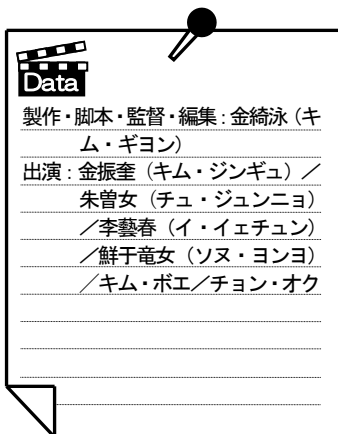 Data
製作・脚本・監督・編集：金綺泳（キ
ム・ギヨン）
出演：金振奎（キム・ジンギュ）／
朱曽女（チュ・ジュンニョ）
／李藝春（イ・イェチュン）
／鮮于竜女（ソヌ・ヨンヨ）
／キム・ボエ／チョン・オク